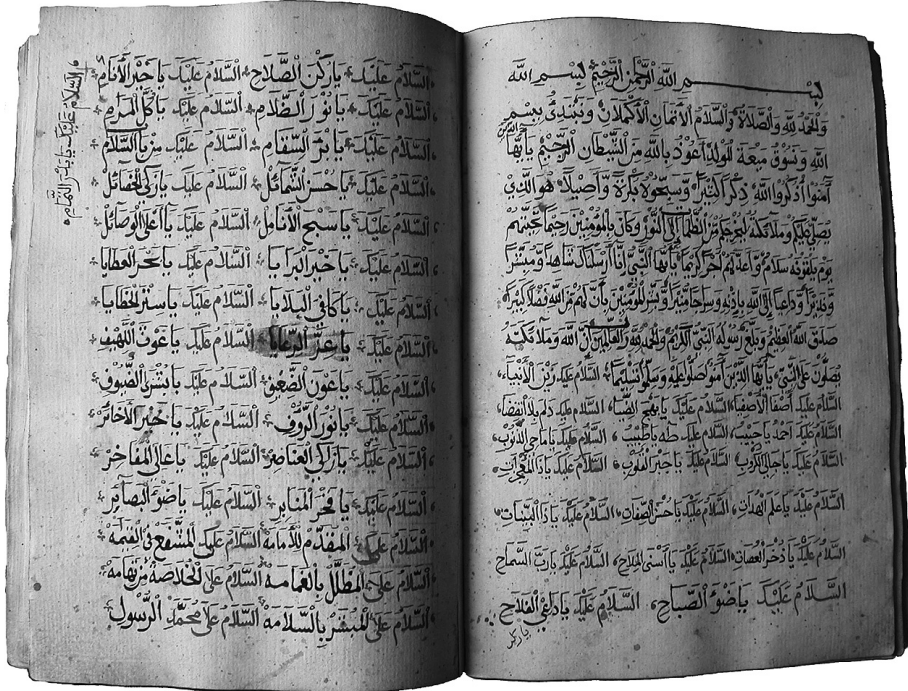 بسم الله الرحمن الرحيم بسم الله
والحمد لله والصلاة والسلام الأتمان الأكملان ونبتدئ ببسم
الله ونسوق أعوذ بالله من الشيطان الرجيم يا أيها الذين
آمنوا اذكروا الله ذكرا كثيرا وسبحوه بكرة وأصيلا هو الذي
يصلي عليكم وملائكته ليخرجكم من الظلمات إلى النور وكان بالمؤمنين رحيما تحيتهم
يوم يلقونه سلام وأعد لهم أجرا كريما يا أيها النبي إنا أرسلناك شاهدا ومبشرا
ونذيرا وداعيا إلى الله بإذنه وسراجا منيرا وبشر المؤمنين بأن لهم من الله فضلا كبيرا
صدق الله العظيم وبلغ رسوله النبي الكريم والحمد لله رب العالمين إن الله وملائكته
يصلون على النبي يا أيها الذين آمنوا صلوا عليه وسلموا تسليما السلام عليك زين الأنبياء
السلام عليك أصفى الأصفياء السلام عليك السلام عليك
السلام عليك أحمد يا حبيب السلام عليك طه يا طبيب السلام عليك يا ماحي الذنوب
السلام عليك يا جالي الكروب السلام عليك السلام عليك يا ذا المعجزات
السلام عليك يا علم الهداة السلام عليك يا حسن الصفات السلام عليك يا ذا البينات
السلام عليك يا ذخر العصاة السلام عليك يا أسنى الملاح السلام عليك يا رب السماح
السلام عليك يا ضوء الصباح السلام عليك يا داعي الفلاح
يا ركن
السلام عليك يا ركن الصلاح السلام عليك يا خير الأنام
السلام عليك يا بدر التمام
السلام عليك يا نور الظلام السلام عليك يا كل المرام
السلام عليك يا برء السقام السلام عليك من يا السلام
السلام عليك يا حسن الشمائل السلام عليك يا زكي الخصائل
السلام عليك يا سبح الأنامل السلام عليك يا أعلى الوصائل
السلام عليك يا خير البرايا السلام عليك يا بحر العطايا
السلام عليك يا كافي البلايا السلام عليك يا ستر الخطايا
السلام عليك يا عز الرعايا السلام عليك يا غوث اللهيف
السلام عليك يا عون الضعيف السلام عليك يا بشرى الضيوف
السلام عليك يا نور الروف السلام عليك يا خير الأخائر
السلام عليك يا زكي العناصر السلام عليك يا عالي المفاخر
السلام عليك يا فخر المنابر السلام عليك يا ضوء البصائر
السلام على المقدم للأمامة السلام على المشفع في القيمه
السلام على المظلل بالغمامه السلام على الخلاصة من تهامه
السلام على المبشر بالسلامه السلام على محمد الرسول